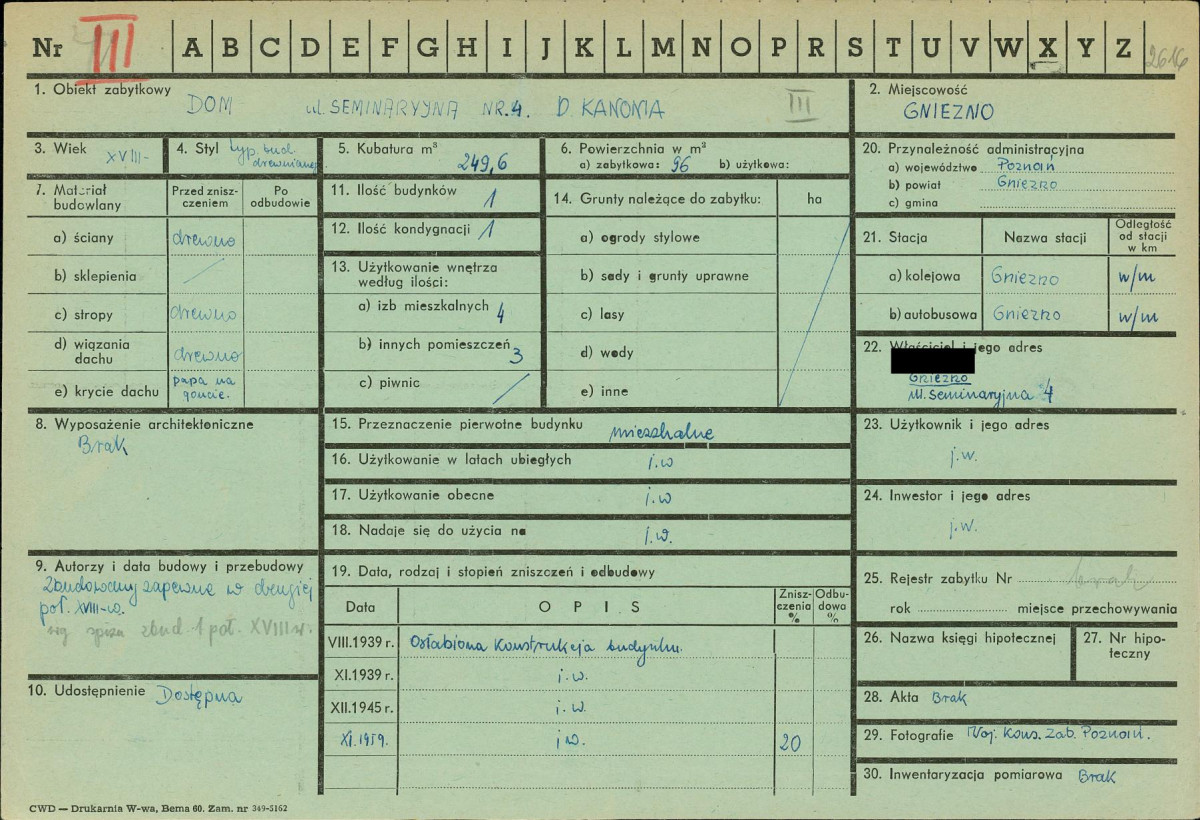 Nr III A B C D E F G H I J K L M N O P R S T U V W X Y Z 2616
1. Obiekt zabytkowy DOM ul. SEMINARYJNA NR.4. D. KANONIA III
2. Miejscowość
GNIEZNO
3. Wiek XVIII-
4. Styl typ. bud.
drewnianeg
5. Kubatura m³
249,6
6. Powierzchnia w m²
a) zabytkowa: 96 b) użytkowa:
20. Przynależność administracyjna
a) województwo Poznań
b) powiat Gniezno
c) gmina
7. Materiał budowlany
Przed znisz-
czeniem
Po
odbudowie
a) ściany drewno
b) sklepienia
c) stropy drewno
d) wiązania
dachu drewno
e) krycie dachu papa na
goncie.
11. Ilość budynków 1
12. Ilość kondygnacji 1
13. Użytkowanie wnętrza
według ilości:
a) izb mieszkalnych 4
b) innych pomieszczeń 3
c) piwnic
14. Grunty należące do zabytku: ha
a) ogrody stylowe
b) sady i grunty uprawne
c) lasy
d) wody
e) inne
21. Stacja Nazwa stacji Odległość
od stacji
w km
a) kolejowa Gniezno w/m
b) autobusowa Gniezno w/m
22. Właściciel i jego adres
Gniezno
ul. Seminaryjna 4
8. Wyposażenie architektoniczne
Brak
15. Przeznaczenie pierwotne budynku mieszkalne
16. Użytkowanie w latach ubiegłych j.w
17. Użytkowanie obecne j.w
18. Nadaje się do użycia na j.w.
23. Użytkownik i jego adres
j.w.
24. Inwestor i jego adres
j.w.
9. Autorzy i data budowy i przebudowy
Zbudowany zapewne w drugiej
poł. XVIII-w.
wg spisu zbud. 1 poł. XVIII w.
10. Udostępnienie Dostępna
19. Data, rodzaj i stopień zniszczeń i odbudowy
Data OPIS Znisz-
czenia
%
Odbu-
dowa
%
VIII.1939 r. Osłabiona konstrukcja budynku.
XI.1939 r. j.w.
XII.1945 r. j.w.
XI.1959. j.w. 20
25. Rejestr zabytku Nr brak
rok miejsce przechowywania
26. Nazwa księgi hipotecznej
27. Nr hipo-
teczny
28. Akta Brak
29. Fotografie Woj. Kons. Zab. Poznań.
30. Inwentaryzacja pomiarowa Brak
CWD — Drukarnia W-wa, Bema 60. Zam. nr 349-5162